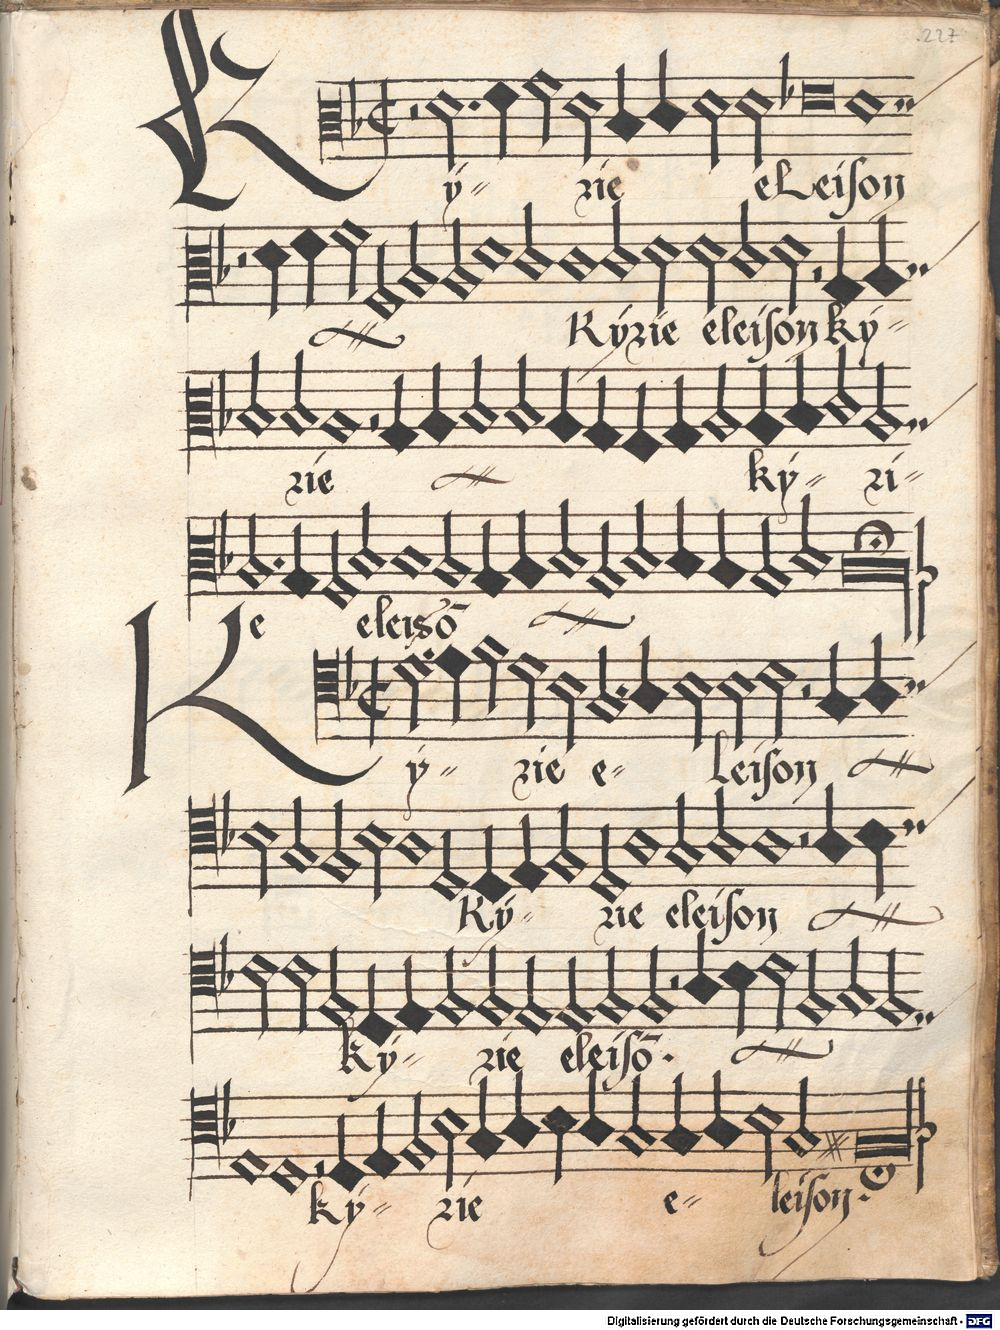 227
Kÿ- rie eLeison
Kÿrie eleison kÿ-
rie kÿ- ri-
e eleisō
Kÿ- rie e- Leison
Kÿ- rie eleison
kÿ- rie eleisō.
kÿ- rie e- leison.
Digitalisierung gefördert durch die Deutsche Forschungsgemeinschaft - DFG